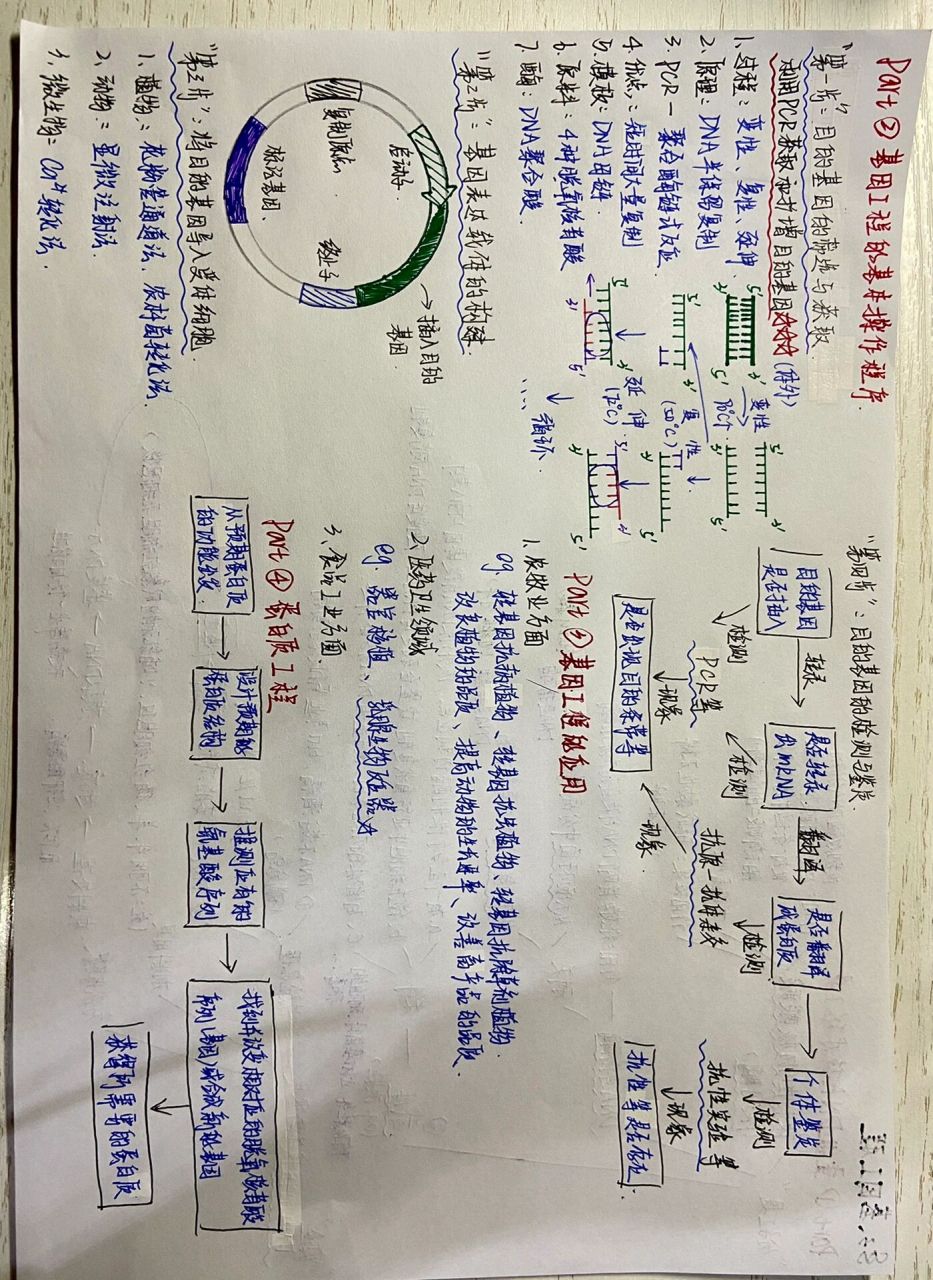 Part ② 基因工程的基本操作程序.
"第一步": 目的基因的筛选与获取
利用PCR获取和扩增目的基因 (体外)
1. 过程: 变性、复性、延伸.
2. 原理: DNA半保留复制
3. PCR — 聚合酶链式反应.
4. 优点: 短时间大量复制
5. 模板: DNA母链.
6. 原料: 4种脱氧核苷酸
7. 酶: DNA聚合酶.
5' 3'
3' 5'
变性
90℃↑
5' 3'
3' 5'
复性
(50℃)
5' 3'
3' 5'
延伸
(72℃)
5' 3'
3' 5'
5' 3'
3' 5'
循环.
"第二步": 基因表达载体的构建.
启动子
插入目的
基因
复制原点
标记基因.
终止子
"第三步": 将目的基因导入受体细胞
1. 植物: 花粉管通道法、农杆菌转化法.
2. 动物: 显微注射法.
3. 微生物: Ca²⁺转化法.
"第四步": 目的基因的检测与鉴定
目的基因
是否插入
转录
是否转录
出mRNA
翻译
是否翻译
成蛋白质
个体鉴定
检测
检测
检测
检测
PCR等
抗原-抗体杂交
抗性实验等
现象
现象.
现象
是否出现目的条带等
抗性等是否存在.
Part ③ 基因工程的应用
1. 农牧业方面
eg. 转基因抗病植物、转基因抗虫植物、转基因抗除草剂植物.
改良植物的品质、提高动物的生长速率、改善畜产品的品质.
2. 医药卫生领域
eg. 器官移植、乳腺生物反应器
3. 食品工业方面.
Part ④ 蛋白质工程
从预期蛋白质
的功能出发.
设计预期的
蛋白质结构
推测应有的
氨基酸序列
找到并改变相对应的脱氧核苷酸
序列(基因)或合成新的基因
获得所需要的蛋白质